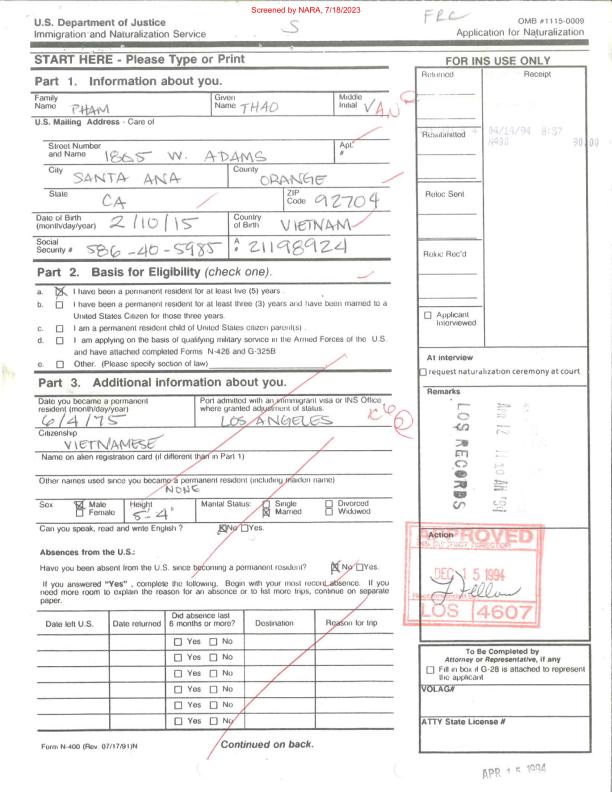 Screened by NARA, 7/18/2023
U.S. Department of Justice
Immigration and Naturalization Service
S
FRC
OMB #1115-0009
Application for Naturalization
START HERE - Please Type or Print
Part 1. Information about you.
Family Name PHAM
Given Name THAO
Middle Initial VAN
U.S. Mailing Address - Care of
Street Number and Name 1865 W. ADAMS
Apt. #
City SANTA ANA
County ORANGE
State CA
ZIP Code 92704
Date of Birth (month/day/year) 2/10/15
Country of Birth VIETNAM
Social Security # 586-40-5985
A # 21198924
Part 2. Basis for Eligibility (check one).
a. I have been a permanent resident for at least five (5) years .
b. I have been a permanent resident for at least three (3) years and have been married to a
United States Citizen for those three years.
c. I am a permanent resident child of United States citizen parent(s) .
d. I am applying on the basis of qualifying military service in the Armed Forces of the U.S.
and have attached completed Forms N-426 and G-325B
e. Other. (Please specify section of law)
Part 3. Additional information about you.
Date you became a permanent resident (month/day/year)
6/4/75
Port admitted with an immigrant visa or INS Office where granted adjustment of status.
LOS ANGELES
Citizenship
VIETNAMESE
Name on alien registration card (if different than in Part 1)
Other names used since you became a permanent resident (including maiden name)
NONE
Sex Male Female
Height 5-4"
Marital Status: Single Married Divorced Widowed
Can you speak, read and write English ? No Yes.
Absences from the U.S.:
Have you been absent from the U.S. since becoming a permanent resident? No Yes.
If you answered "Yes" , complete the following, Begin with your most recent absence. If you
need more room to explain the reason for an absence or to list more trips, continue on separate
paper.
Date left U.S. Date returned Did absence last 6 months or more? Destination Reason for trip
Yes No
Yes No
Yes No
Yes No
Yes No
Yes No
Form N-400 (Rev. 07/17/91)N
Continued on back.
FOR INS USE ONLY
Returned
Receipt
Resubmitted
04/14/94 8:57
N400 90.00
Reloc Sent
Reloc Rec'd
Applicant Interviewed
At interview
request naturalization ceremony at court
Remarks
LOS RECORDS
Action
APPROVED
DEC 15 1994
LOS 4607
To Be Completed by
Attorney or Representative, if any
Fill in box if G-28 is attached to represent
the applicant
VOLAG#
ATTY State License #
APR 15 1994